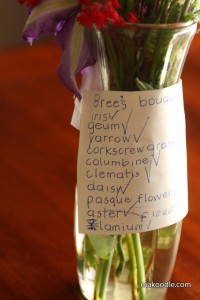 Bree's bouq
iris ✓
geum ✓
yarrow ✓
corkscrew
columbine ✓
clematis ✓
daisy ✓
pasque flower
aster ✓ flower
lamium ✓
inkoodle.com